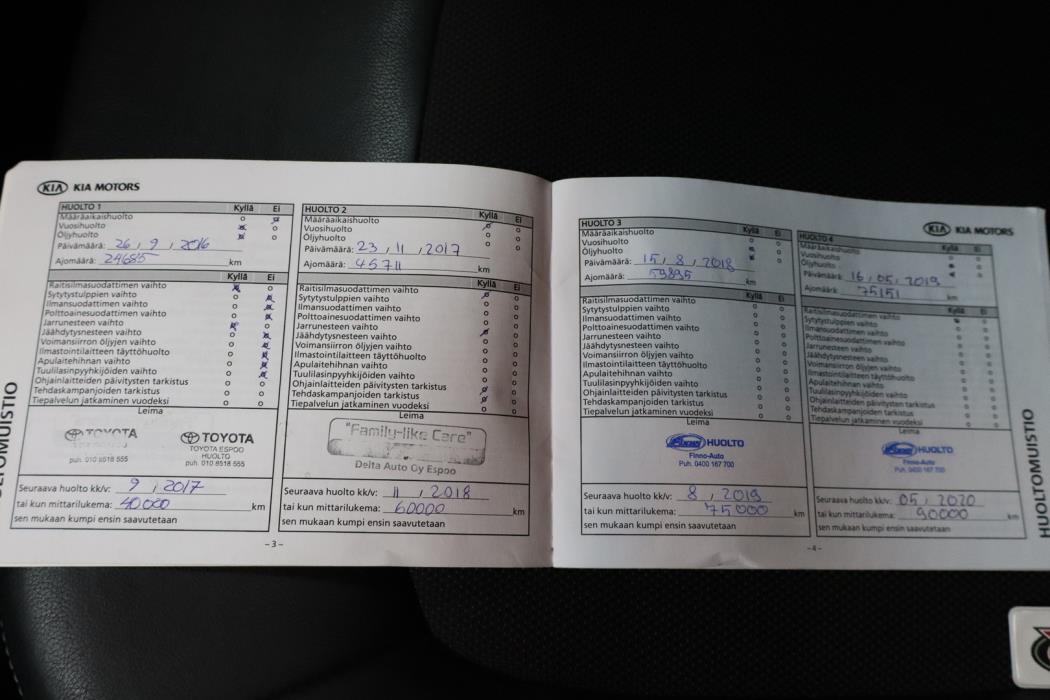 KIA KIA MOTORS
HUOLTO 1 Kyllä Ei
Määräaikaishuolto
Vuosihuolto
Öljyhuolto
Päivämäärä: 26 , 9 , 2016
Ajomäärä: 24685 km
Kyllä Ei
Raitisilmasuodattimen vaihto
Sytytystulppien vaihto
Ilmansuodattimen vaihto
Polttoainesuodattimen vaihto
Jarrunesteen vaihto
Jäähdytysnesteen vaihto
Voimansiirron öljyjen vaihto
Ilmastointilaitteen täyttöhuolto
Apulaitehihnan vaihto
Tuulilasinpyyhkijöiden vaihto
Ohjainlaitteiden päivitysten tarkistus
Tehdaskampanjoiden tarkistus
Tiepalvelun jatkaminen vuodeksi
Leima
TOYOTA
puh. 010 8518 555
TOYOTA
TOYOTA ESPOO
HUOLTO
puh. 010 8518 555
Seuraava huolto kk/v: 9 , 2017
tai kun mittarilukema: 40000 km
sen mukaan kumpi ensin saavutetaan
-3-
HUOLTO 2 Kyllä Ei
Määräaikaishuolto
Vuosihuolto
Öljyhuolto
Päivämäärä: 23 , 11 , 2017
Ajomäärä: 45711 km
Kyllä Ei
Raitisilmasuodattimen vaihto
Sytytystulppien vaihto
Ilmansuodattimen vaihto
Polttoainesuodattimen vaihto
Jarrunesteen vaihto
Jäähdytysnesteen vaihto
Voimansiirron öljyjen vaihto
Ilmastointilaitteen täyttöhuolto
Apulaitehihnan vaihto
Tuulilasinpyyhkijöiden vaihto
Ohjainlaitteiden päivitysten tarkistus
Tehdaskampanjoiden tarkistus
Tiepalvelun jatkaminen vuodeksi
Leima
"Family-like Care"
Delta Auto Oy Espoo
Seuraava huolto kk/v: 11 , 2018
tai kun mittarilukema: 60000 km
sen mukaan kumpi ensin saavutetaan
HUOLTO 3 Kyllä Ei
Määräaikaishuolto
Vuosihuolto
Öljyhuolto
Päivämäärä: 15 , 8 , 2018
Ajomäärä: 59895 km
Kyllä Ei
Raitisilmasuodattimen vaihto
Sytytystulppien vaihto
Ilmansuodattimen vaihto
Polttoainesuodattimen vaihto
Jarrunesteen vaihto
Jäähdytysnesteen vaihto
Voimansiirron öljyjen vaihto
Ilmastointilaitteen täyttöhuolto
Apulaitehihnan vaihto
Tuulilasinpyyhkijöiden vaihto
Ohjainlaitteiden päivitysten tarkistus
Tehdaskampanjoiden tarkistus
Tiepalvelun jatkaminen vuodeksi
Leima
HUOLTO
Finno-Auto
Puh. 0400 167 700
Seuraava huolto kk/v: 8 , 2019
tai kun mittarilukema: 75000 km
sen mukaan kumpi ensin saavutetaan
-4-
KIA KIA MOTORS
HUOLTO 4 Kyllä Ei
Määräaikaishuolto
Vuosihuolto
Öljyhuolto
Päivämäärä: 16 , 05 , 2019
Ajomäärä: 75151 km
Kyllä Ei
Raitisilmasuodattimen vaihto
Sytytystulppien vaihto
Ilmansuodattimen vaihto
Polttoainesuodattimen vaihto
Jarrunesteen vaihto
Jäähdytysnesteen vaihto
Voimansiirron öljyjen vaihto
Ilmastointilaitteen täyttöhuolto
Apulaitehihnan vaihto
Tuulilasinpyyhkijöiden vaihto
Ohjainlaitteiden päivitysten tarkistus
Tehdaskampanjoiden tarkistus
Tiepalvelun jatkaminen vuodeksi
Leima
HUOLTO
Finno-Auto
Puh. 0400 167 700
Seuraava huolto kk/v: 05 , 2020
tai kun mittarilukema: 90000 km
sen mukaan kumpi ensin saavutetaan
HUOLTOMUISTIO